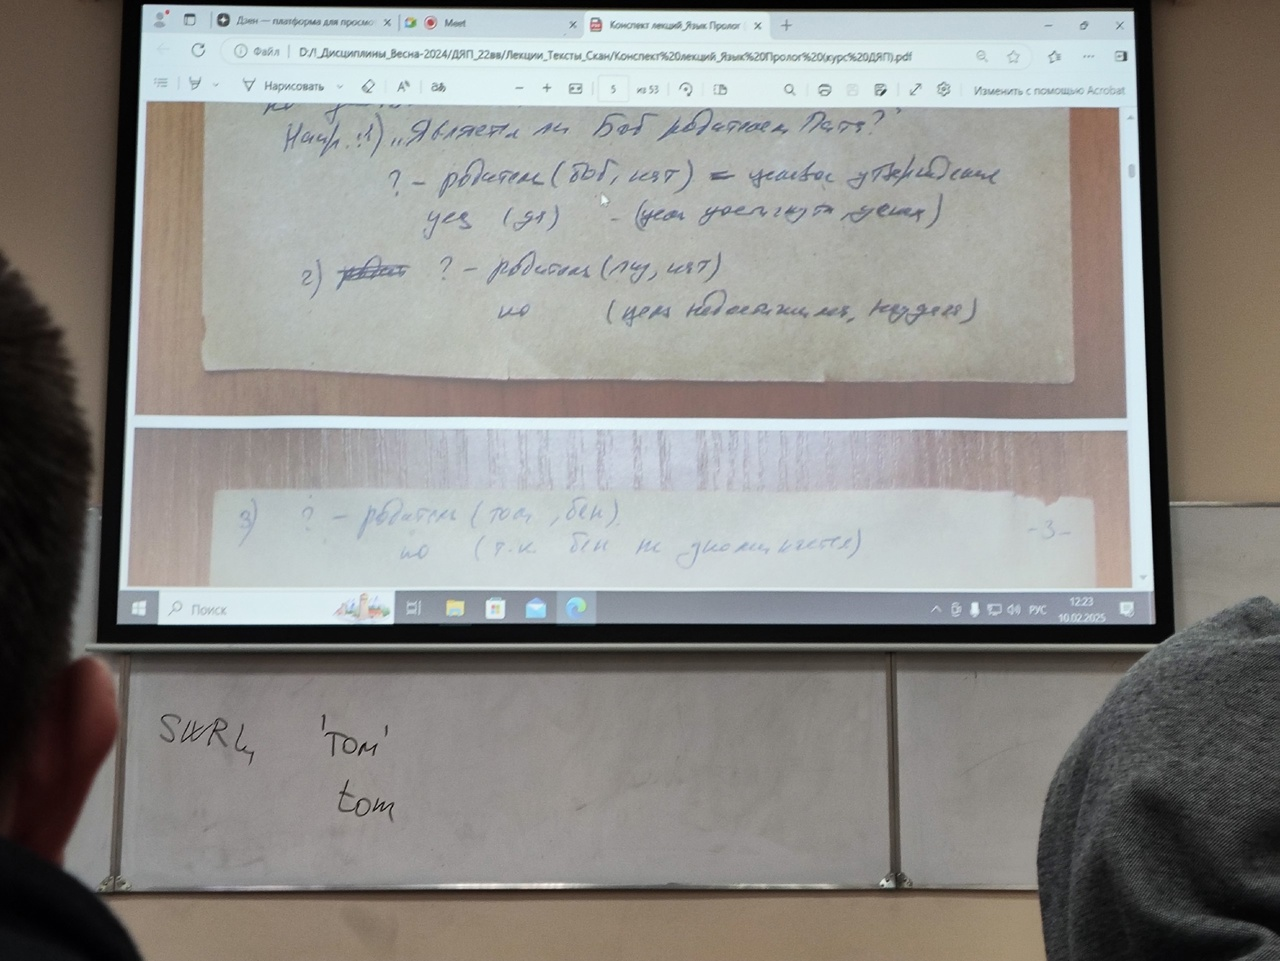 Дзен — платформа для просмо
Meet
Конспект лекций_Язык Пролог
Файл
D:/I_Дисциплины_Весна-2024/ДЯП_22вв/Лекции_Тексты_Скан/Конспект%20лекций_Язык%20Пролог%20(курс%20ДЯП).pdf
Нарисовать
5 из 53
Изменить с помощью Acrobat
Напр.: 1) „Является ли Боб родителем Пэта?"
? – родитель (боб, пэт) – целевое утверждение
yes (да) – (цель достигнута, успех)
2) ? – родитель (лиз, пэт)
no (цель недостижима, неудача)
3) ? – родитель (том, бен)
-3-
no (т.к. бен не упоминается)
Поиск
РУС
12:23
10.02.2025
SWRL 'Tom'
tom